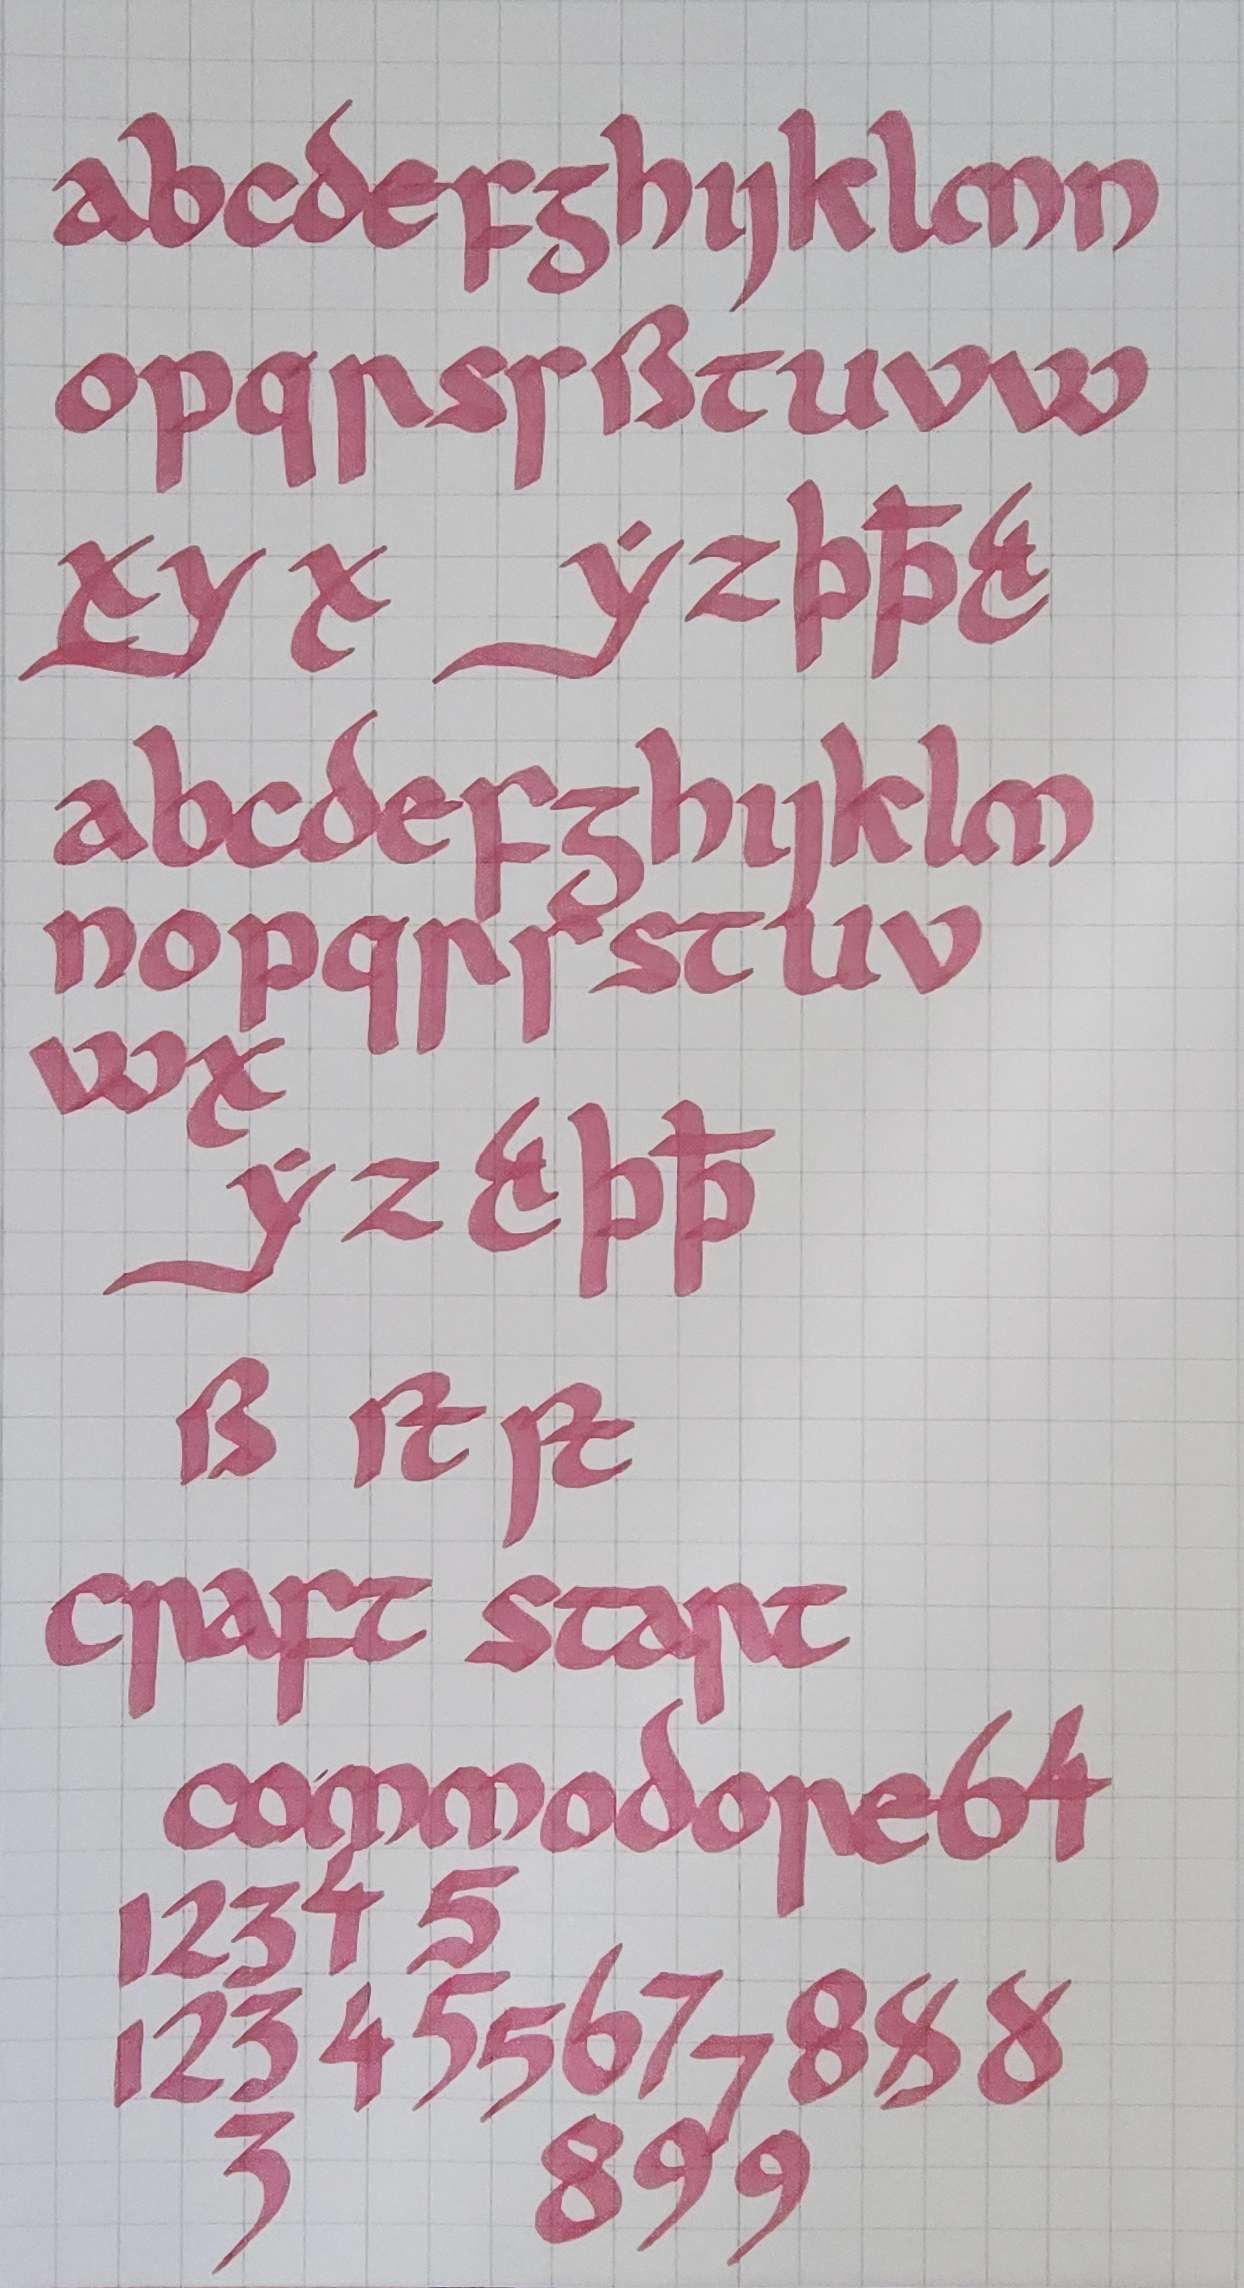 abcdefghijklmn
opqrsſßtuvw
xy x ẏzþꝥ&
abcdefghijklm
nopqrſstuv
wx
ẏz&þꝥ
ß ſt ſt
craft start
commodore64
1234 5
123455677888
3 899